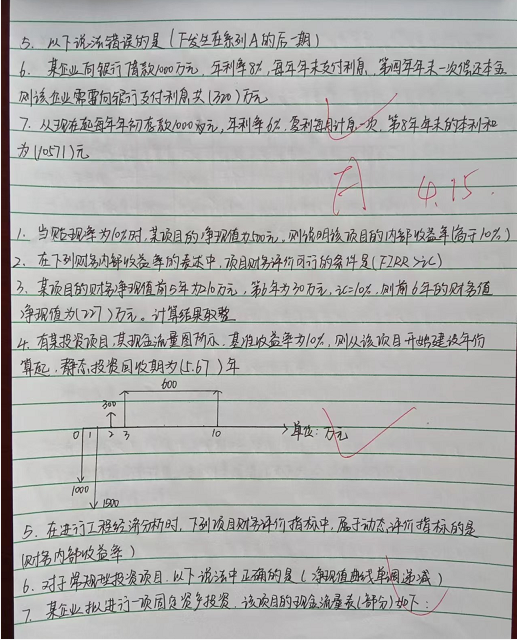 5、以下说法错误的是(F发生在系列A的后一期)
6、某企业向银行借款1000万元，年利率8%，每年年末支付利息，第四年年末一次偿还本金
则该企业需要向银行支付利息共(320)万元
7、从现在起每年年初存款1000万元，年利率6%，复利每月计息一次，第8年年末的本利和
为(10571)元
A 4.15.
1、当贴现率为10%时，某项目的净现值为500元，则说明该项目的内部收益率(高于10%)
2、在下列财务内部收益率的表述中，项目财务评价可行的条件是(FIRR>ic)
3、某项目的财务净现值前5年为210万元，第6年为30万元，ic=10%，则前6年的财务
净现值为(227)万元。计算结果取整
4、有某投资项目，其现金流量图所示，基准收益率为10%，则从该项目开始建设年份
算起，静态投资回收期为(5.67)年
600
300
0 1 2 3 10 单位：万元
1000
1500
5、在进行工程经济分析时，下列项目财务评价指标中，属于动态评价指标的是
(财务内部收益率)
6、对于常规投资项目，以下说法中正确的是(净现值曲线单调递减)
7、某企业拟进行一项固定资产投资，该项目的现金流量表(部分)如下：